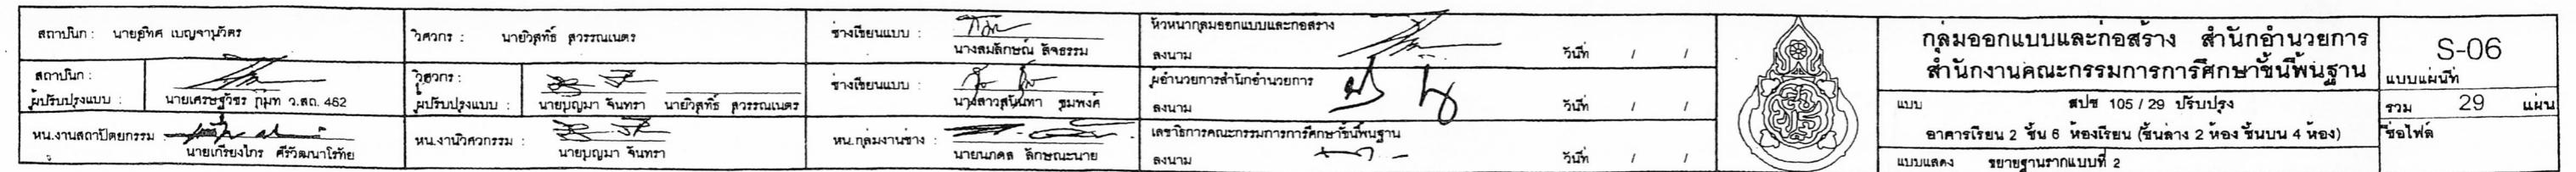 สถาปนิก : นายอุทิศ เบญจานุวัตร
สถาปนิก :
ผู้ปรับปรุงแบบ : นายเศรษฐวัชร ภุมภ์ ว.สถ. 462
หน.งานสถาปัตยกรรม
นายเกรียงไกร ศิริวัฒนาโรทัย
วิศวกร : นายวิสุทธิ์ สุวรรณเนตร
วิศวกร :
ผู้ปรับปรุงแบบ : นายบุญมา จันทรา นายวิสุทธิ์ สุวรรณเนตร
หน.งานวิศวกรรม :
นายบุญมา จันทรา
ช่างเขียนแบบ :
นางสมลักษณ์ ลิจธรรม
ช่างเขียนแบบ :
นางสาวสุนันทา ชุมพงศ์
หน.กลุ่มงานช่าง :
นายนภดล ลักษณะนาย
หัวหน้ากลุ่มออกแบบและก่อสร้าง
ลงนาม วันที่ / /
ผู้อำนวยการสำนักอำนวยการ
ลงนาม วันที่ / /
เลขาธิการคณะกรรมการการศึกษาขั้นพื้นฐาน
ลงนาม วันที่ / /
กลุ่มออกแบบและก่อสร้าง สำนักอำนวยการ
สำนักงานคณะกรรมการการศึกษาขั้นพื้นฐาน
แบบ สปช 105 / 29 ปรับปรุง
อาคารเรียน 2 ชั้น 6 ห้องเรียน (ชั้นล่าง 2 ห้อง ชั้นบน 4 ห้อง)
แบบแสดง ขยายฐานรากแบบที่ 2
S-06
แบบแผ่นที่
รวม 29 แผ่น
ชื่อไฟล์